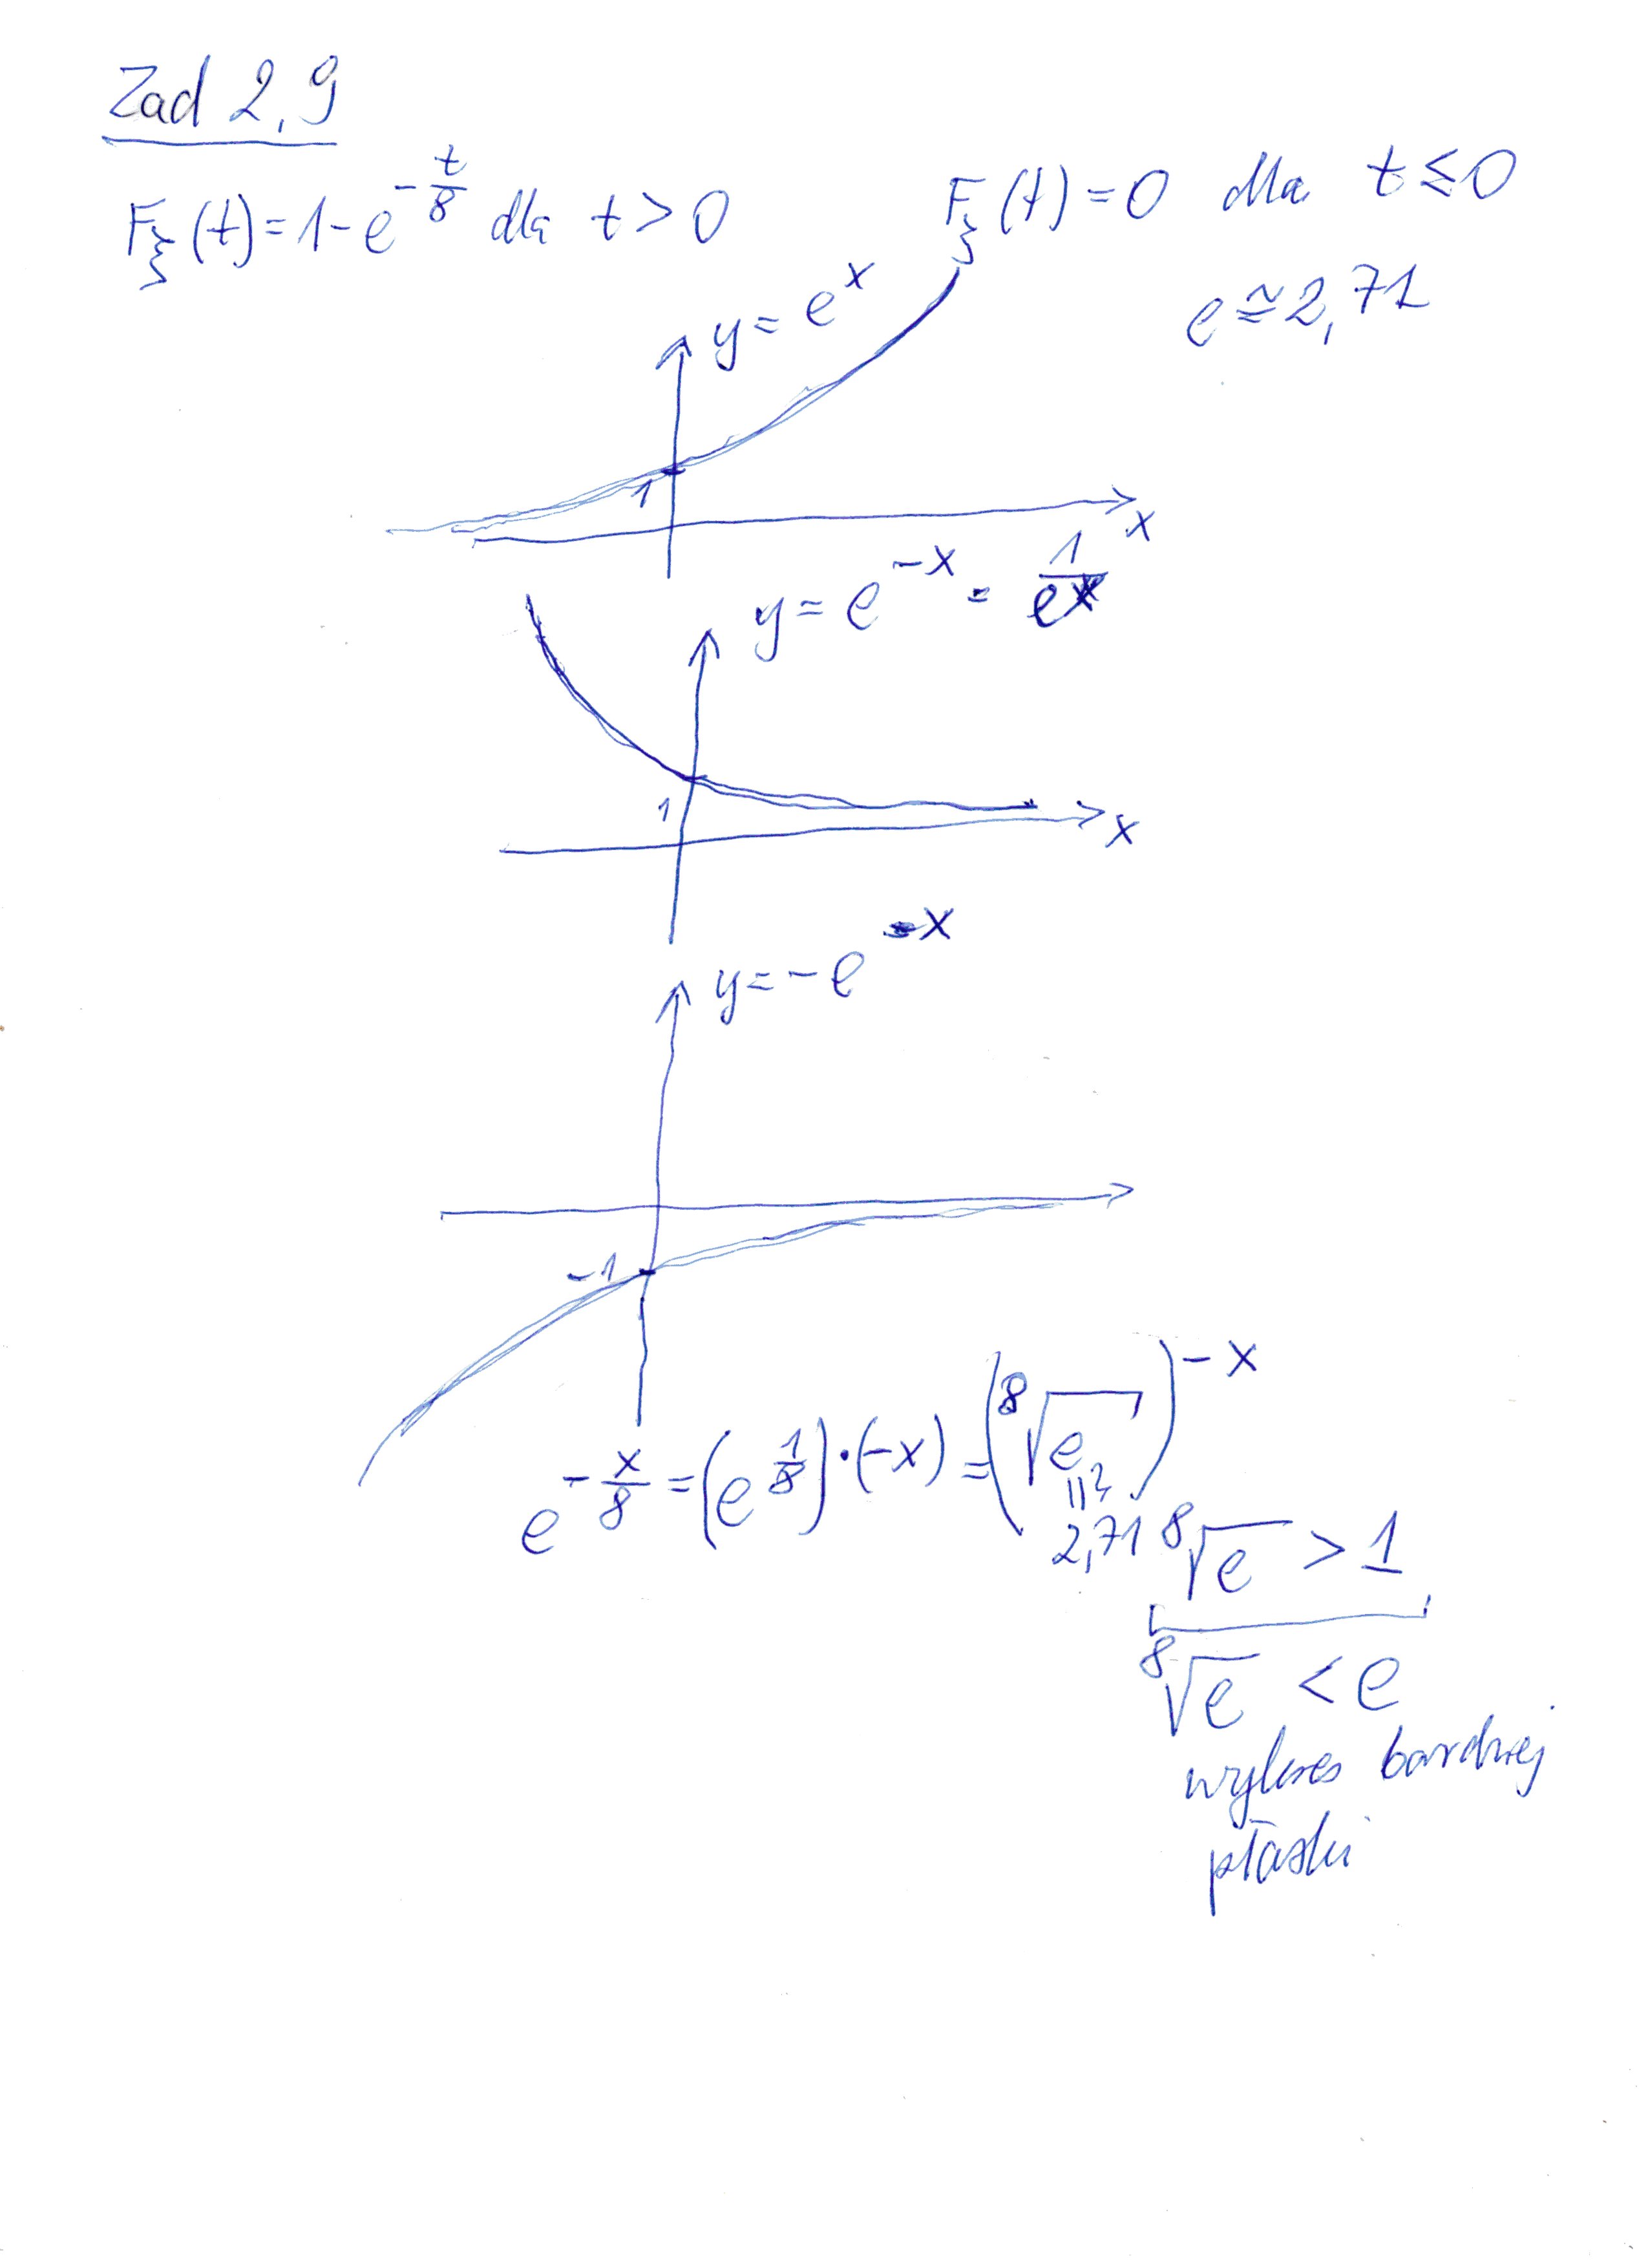 Zad 2,9
F_ξ(t)=1-e^{-t/8} dla t>0
F_ξ(t)=0 dla t≤0
e≃2,71
y=e^x
1
x
y=e^{-x}=1/e^x
1
x
y=-e^{-x}
-1
e^{-x/8}=(e^{1/8})·(-x)=(⁸√e)^{-x}
2,71
⁸√e >1
⁸√e <e
wykres bardziej
płaski